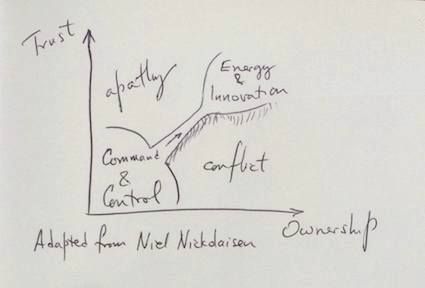 Trust
apathy
Energy
&
Innovation
Command
&
Control
conflict
Ownership
Adapted from Niel Nickdaisen